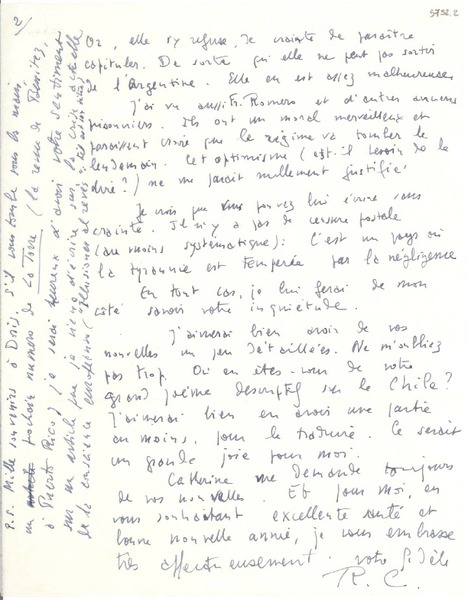 2/
5752.2
Or, elle s'y refuse, de crainte de paraître
capituler. De sorte qu'elle ne peut pas sortir
de l'Argentine. Elle en est assez malheureuse.
J'ai vu aussi Fr. Romero et d'autres anciens
prisonniers. Ils ont un moral merveilleux et
paraissent croire que le régime va tomber le
lendemain. Cet optimisme (est-il besoin de le
dire?) ne me paraît nullement justifié.
Je crois que vous pouvez lui écrire sans
crainte. Il n'y a pas de censure postale
(du moins systématique): c'est un pays où
la tyrannie est tempérée par la négligence
En tout cas, je lui ferai de mon
côté savoir votre inquiétude.
J'aimerai bien avoir de vos
nouvelles un peu détaillées. Ne m'oubliez
pas trop. Où en êtes-vous de votre
grand poème descriptif sur le Chile?
J'aimerai bien en avoir une partie
au moins, pour le traduire. Ce serait
une grande joie pour moi.
Catherine me demande toujours
de vos nouvelles. Et pour moi, en
vous souhaitant excellente santé et
bonne nouvelle année, je vous embrasse
très affectueusement. votre fidèle
R. C.
P.S. Mille souvenirs à Doris. S'il vous tombe sous la main,
un prochain numéro de La Torre (la revue de Benitez,
à Puerto Rico) je serai heureux d'avoir votre sentiment
sur un article que je viens d'écrire sur la crise actuelle
de la conscience européenne